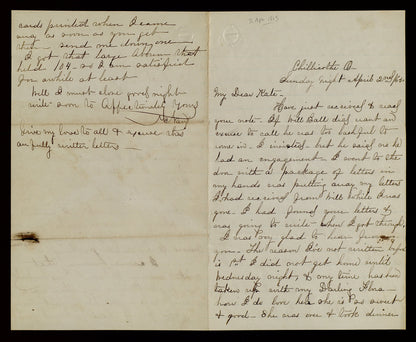 cards printed when I came
away as soon as you get
them send me
I got that large Album that
held 124 so I am satisfied
for awhile at least
Well I must close good night
write soon to Affectionately Yours
Give my love to all & excuse this
awfully written letter
2 Apr. 1865
Chillicothe O.
Sunday Night April 2nd/65
My Dear Kate.
Have just received & read
your note. If Will Ball did want and
excuse to call he was to bashful to
come in. I insisted but he said no he
had an engagement. I went to the
door with a package of letters in
my hands was putting away my letters
I had received from Will while Anna
gone. I had found your letters &
was going to write when I got through.
I was very glad to hear from
you. The reason I've not written before
is 1st I did not get home until
Wednesday night, & my time has been
taken up with my Darling
how I do love her she is so sweet
& good. She was over & took dinner